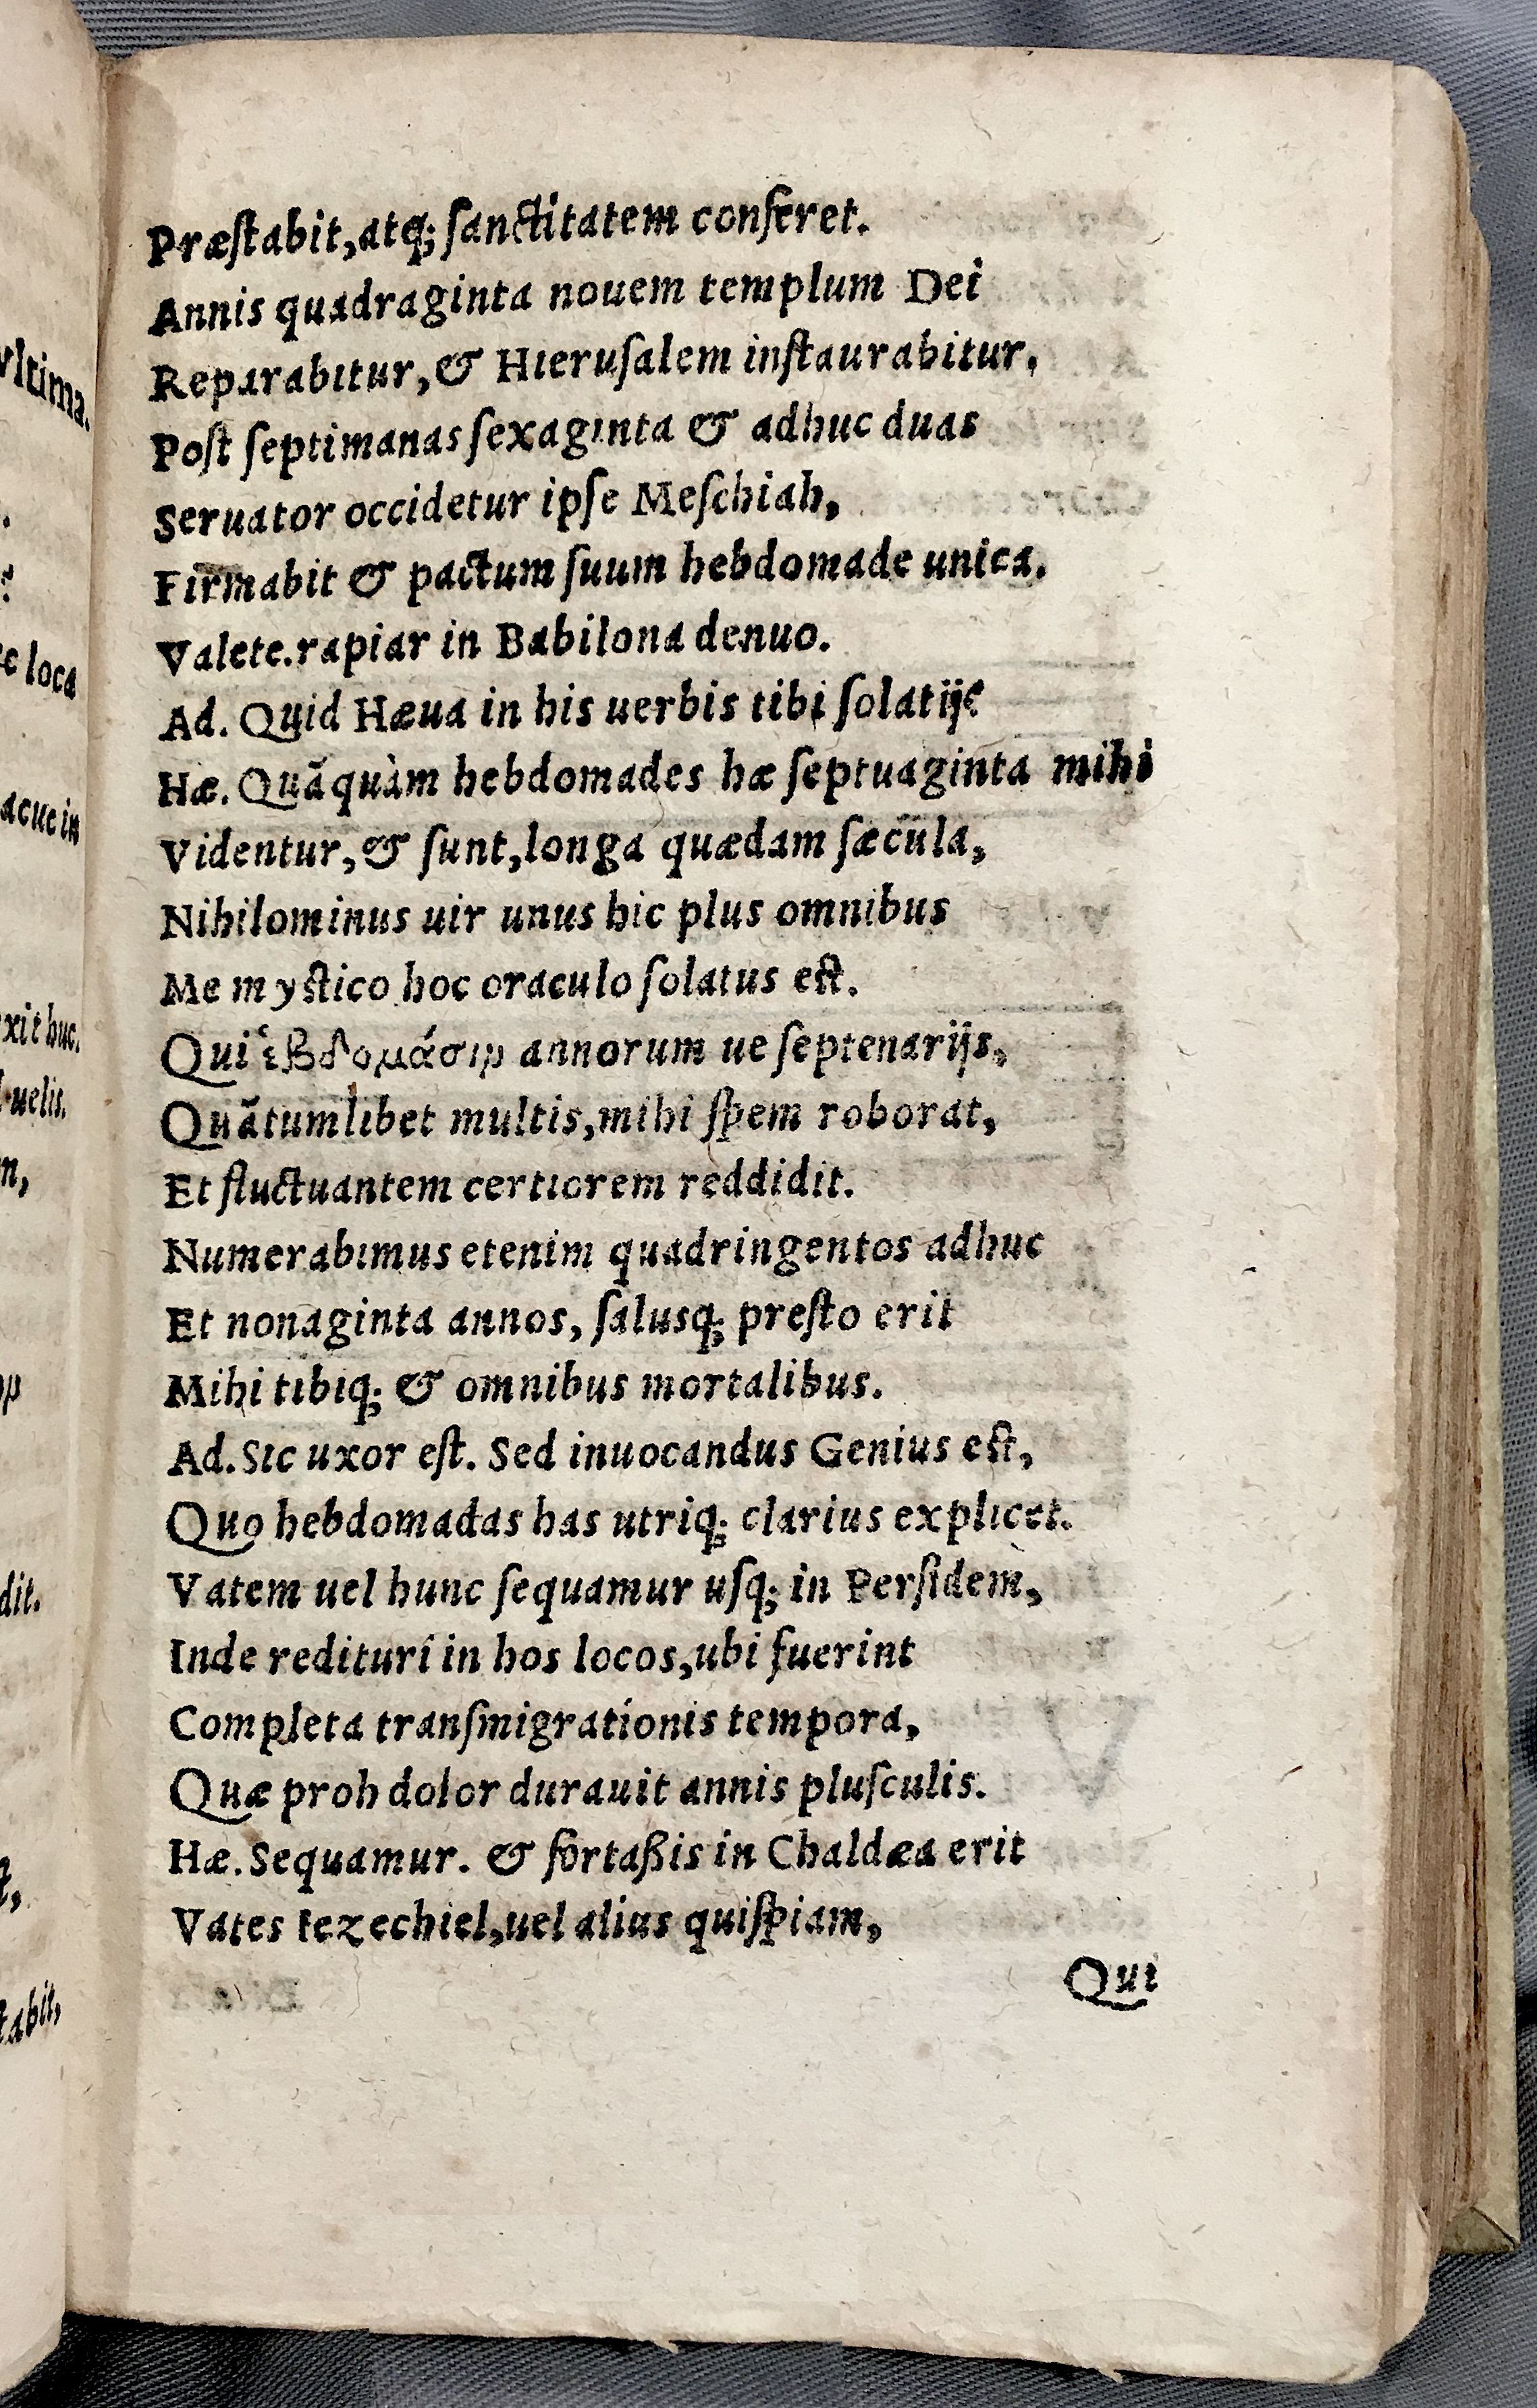 Præſtabit,atq; ſanctitatem conferet.
Annis quadraginta nouem templum Dei
Reparabitur,& Hieruſalem inſtaurabitur,
Poſt ſeptimanas ſexaginta & adhuc duas
Seruator occidetur ipſe Meſchiah,
Firmabit & pactum ſuum hebdomade unica.
Valete.rapiar in Babilona denuo.
Ad. Quid Hæua in his uerbis tibi ſolatij?
Hæ. Quãquàm hebdomades hæ ſeptuaginta mihi
Videntur,& ſunt,longa quædam ſæcula,
Nihilominus uir unus hic plus omnibus
Me myſtico hoc oraculo ſolatus eſt.
Qui ἑβδομάσιν annorum ue ſeptenarijs,
Quãtumlibet multis,mihi ſpem roborat,
Et fluctuantem certiorem reddidit.
Numerabimus etenim quadringentos adhuc
Et nonaginta annos, ſalusq; preſto erit
Mihi tibiq; & omnibus mortalibus.
Ad. Sic uxor eſt. Sed inuocandus Genius eſt,
Quo hebdomadas has utriq; clarius explicet.
Vatem uel hunc ſequamur uſq; in Perſidem,
Inde redituri in hos locos,ubi fuerint
Completa tranſmigrationis tempora,
Quæ proh dolor durauit annis pluſculis.
Hæ. Sequamur. & fortaßis in Chaldæa erit
Vates Iezechiel,uel alius quiſpiam,
Qui
vltima.
loca
acue in
xit huc.
uelis.
dit.
tabit,